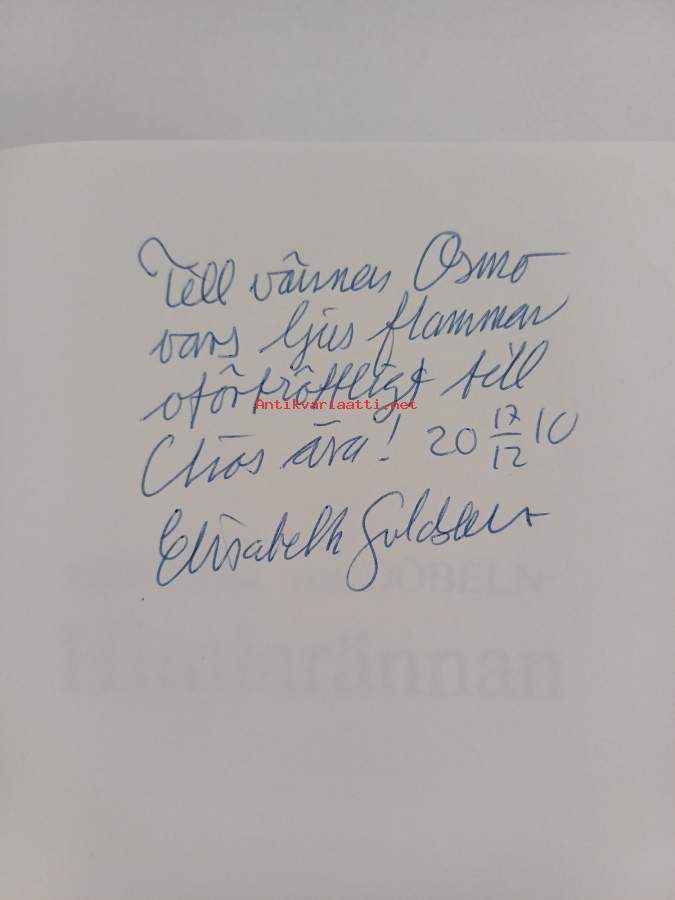 Till vännen Osmo
vars ljus flammar
oförtröttligt till
Clios ära! 20 17/12 10
Elisabeth
Antikvariaatti.net
DÖBELN
Himlarännan